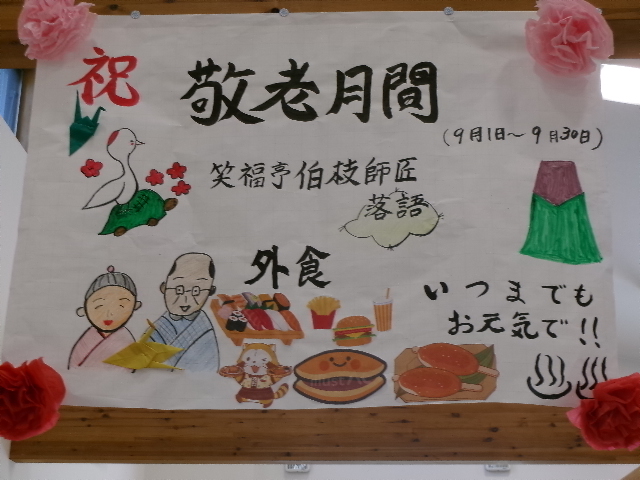 祝
敬老月間
(9月1日～9月30日)
笑福亭伯枝師匠
落語
外食
いつまでも
お元気で!!